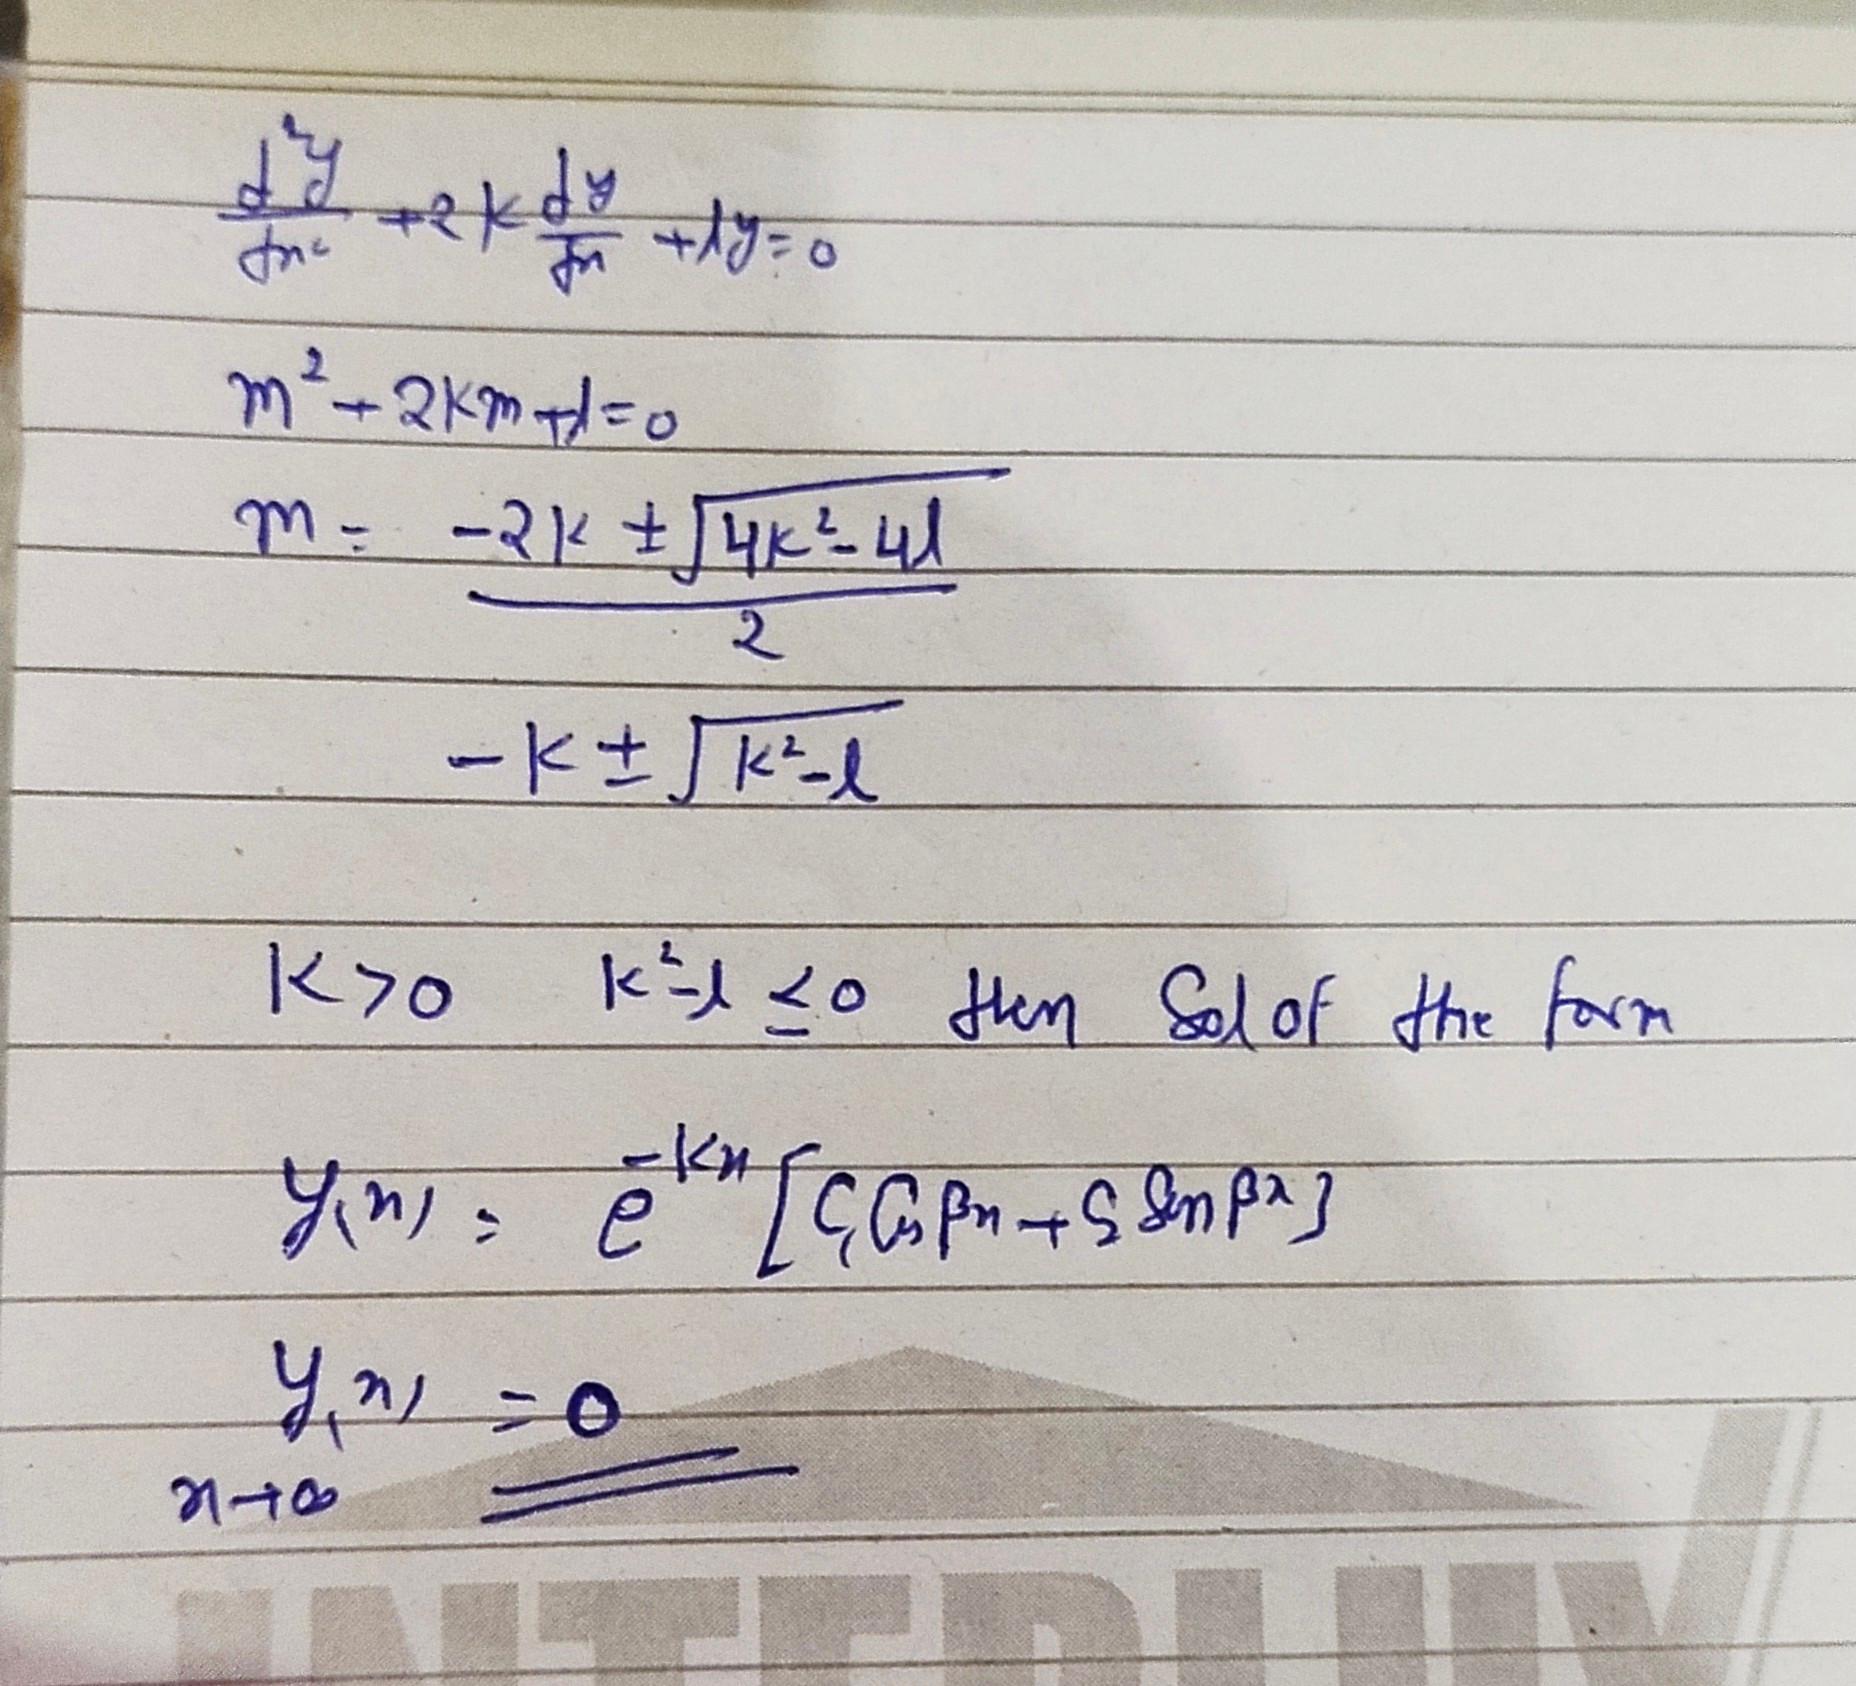 d²y/dx² + 2k dy/dx + ly = 0
m² + 2km + l = 0
m = (-2k ± √(4k² - 4l))/2
-k ± √(k² - l)
k > 0 k² - l ≤ 0 then Sol of the form
y(x) = e^(-kx) [C₁ Cos βx + C₂ Sin βx]
y(x) = 0
x→∞